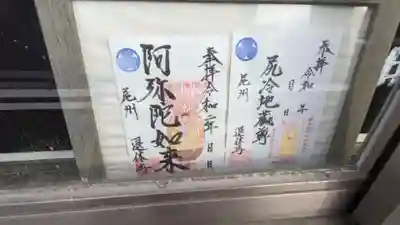 奉拝
令和 年
月 日
尻冷地蔵尊
尾州
退休寺
奉拝 令和二年 月 日
阿弥陀如来
尾州
退休寺